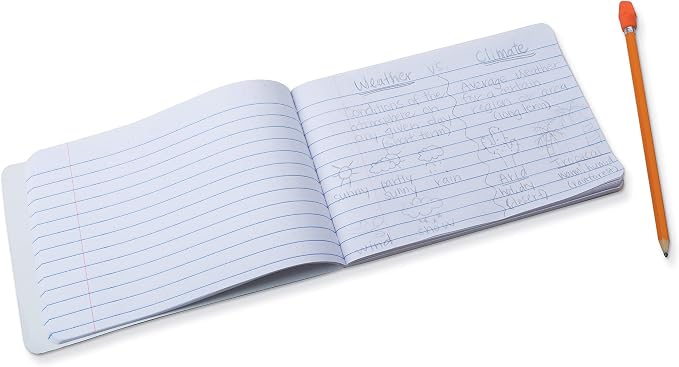 Weather vs. Climate
Conditions of the
atmosphere on
any given day
(short term)
Average weather
for a certain
region area
(long term)
sunny mostly
sunny rain
wind snow
Arid
hot, dry
(desert)
Tropical
warm, humid
(rainforest)